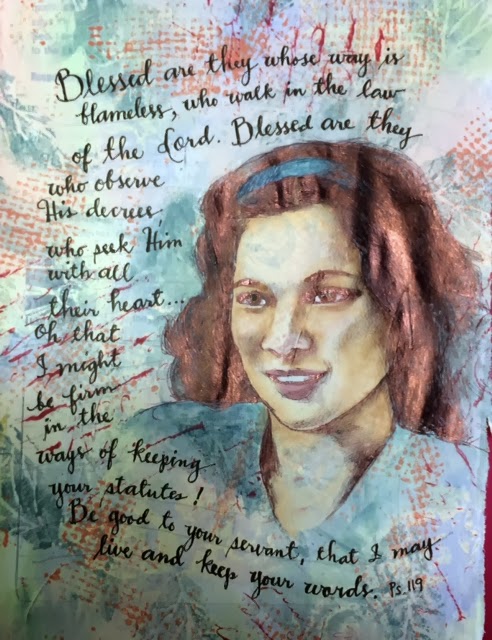 Blessed are they whose way is
blameless, who walk in the law
of the Lord. Blessed are they
who observe
His decrees
who seek Him
with all
their heart...
Oh that
I might
be firm
in the
ways of keeping
your statutes!
Be good to your servant, that I may
live and keep your words. Ps. 119